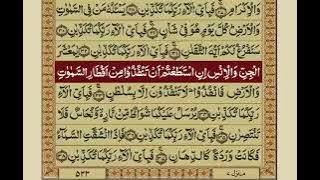 وَالْاِكْرَامِ فَبِاَيِّ اٰلَآءِ رَبِّكُمَا تُكَذِّبٰنِ يَسْـَٔلُهٗ مَنْ فِي السَّمٰوٰتِ
وَالْاَرْضِ كُلَّ يَوْمٍ هُوَ فِيْ شَاْنٍ فَبِاَيِّ اٰلَآءِ رَبِّكُمَا تُكَذِّبٰنِ
سَنَفْرُغُ لَكُمْ اَيُّهَ الثَّقَلٰنِ فَبِاَيِّ اٰلَآءِ رَبِّكُمَا تُكَذِّبٰنِ يٰمَعْشَرَ
الْجِنِّ وَالْاِنْسِ اِنِ اسْتَطَعْتُمْ اَنْ تَنْفُذُوْا مِنْ اَقْطَارِ السَّمٰوٰتِ
وَالْاَرْضِ فَانْفُذُوْا لَا تَنْفُذُوْنَ اِلَّا بِسُلْطٰنٍ فَبِاَيِّ اٰلَآءِ
رَبِّكُمَا تُكَذِّبٰنِ يُرْسَلُ عَلَيْكُمَا شُوَاظٌ مِّنْ نَّارٍ وَّنُحَاسٌ فَلَا
تَنْتَصِرٰنِ فَبِاَيِّ اٰلَآءِ رَبِّكُمَا تُكَذِّبٰنِ فَاِذَا انْشَقَّتِ السَّمَآءُ
فَكَانَتْ وَرْدَةً كَالدِّهَانِ فَبِاَيِّ اٰلَآءِ رَبِّكُمَا تُكَذِّبٰنِ
منزل ۷ ۵۳۳